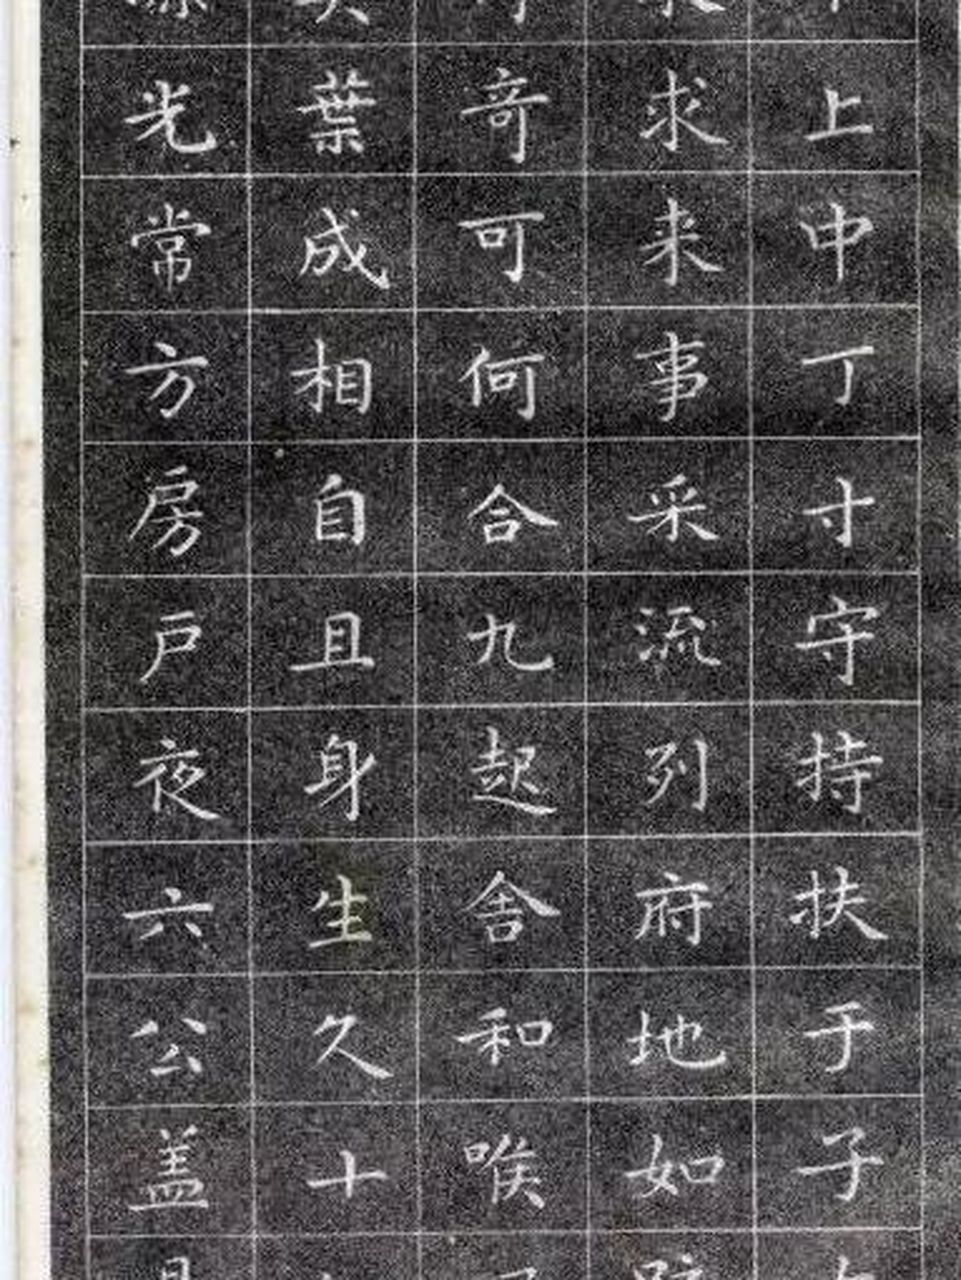 上中丁寸守持扶于子
求来事采流列府地如
奇可何合九起舍和喉
葉成相自且身生久十
光常方房戶夜六公盖